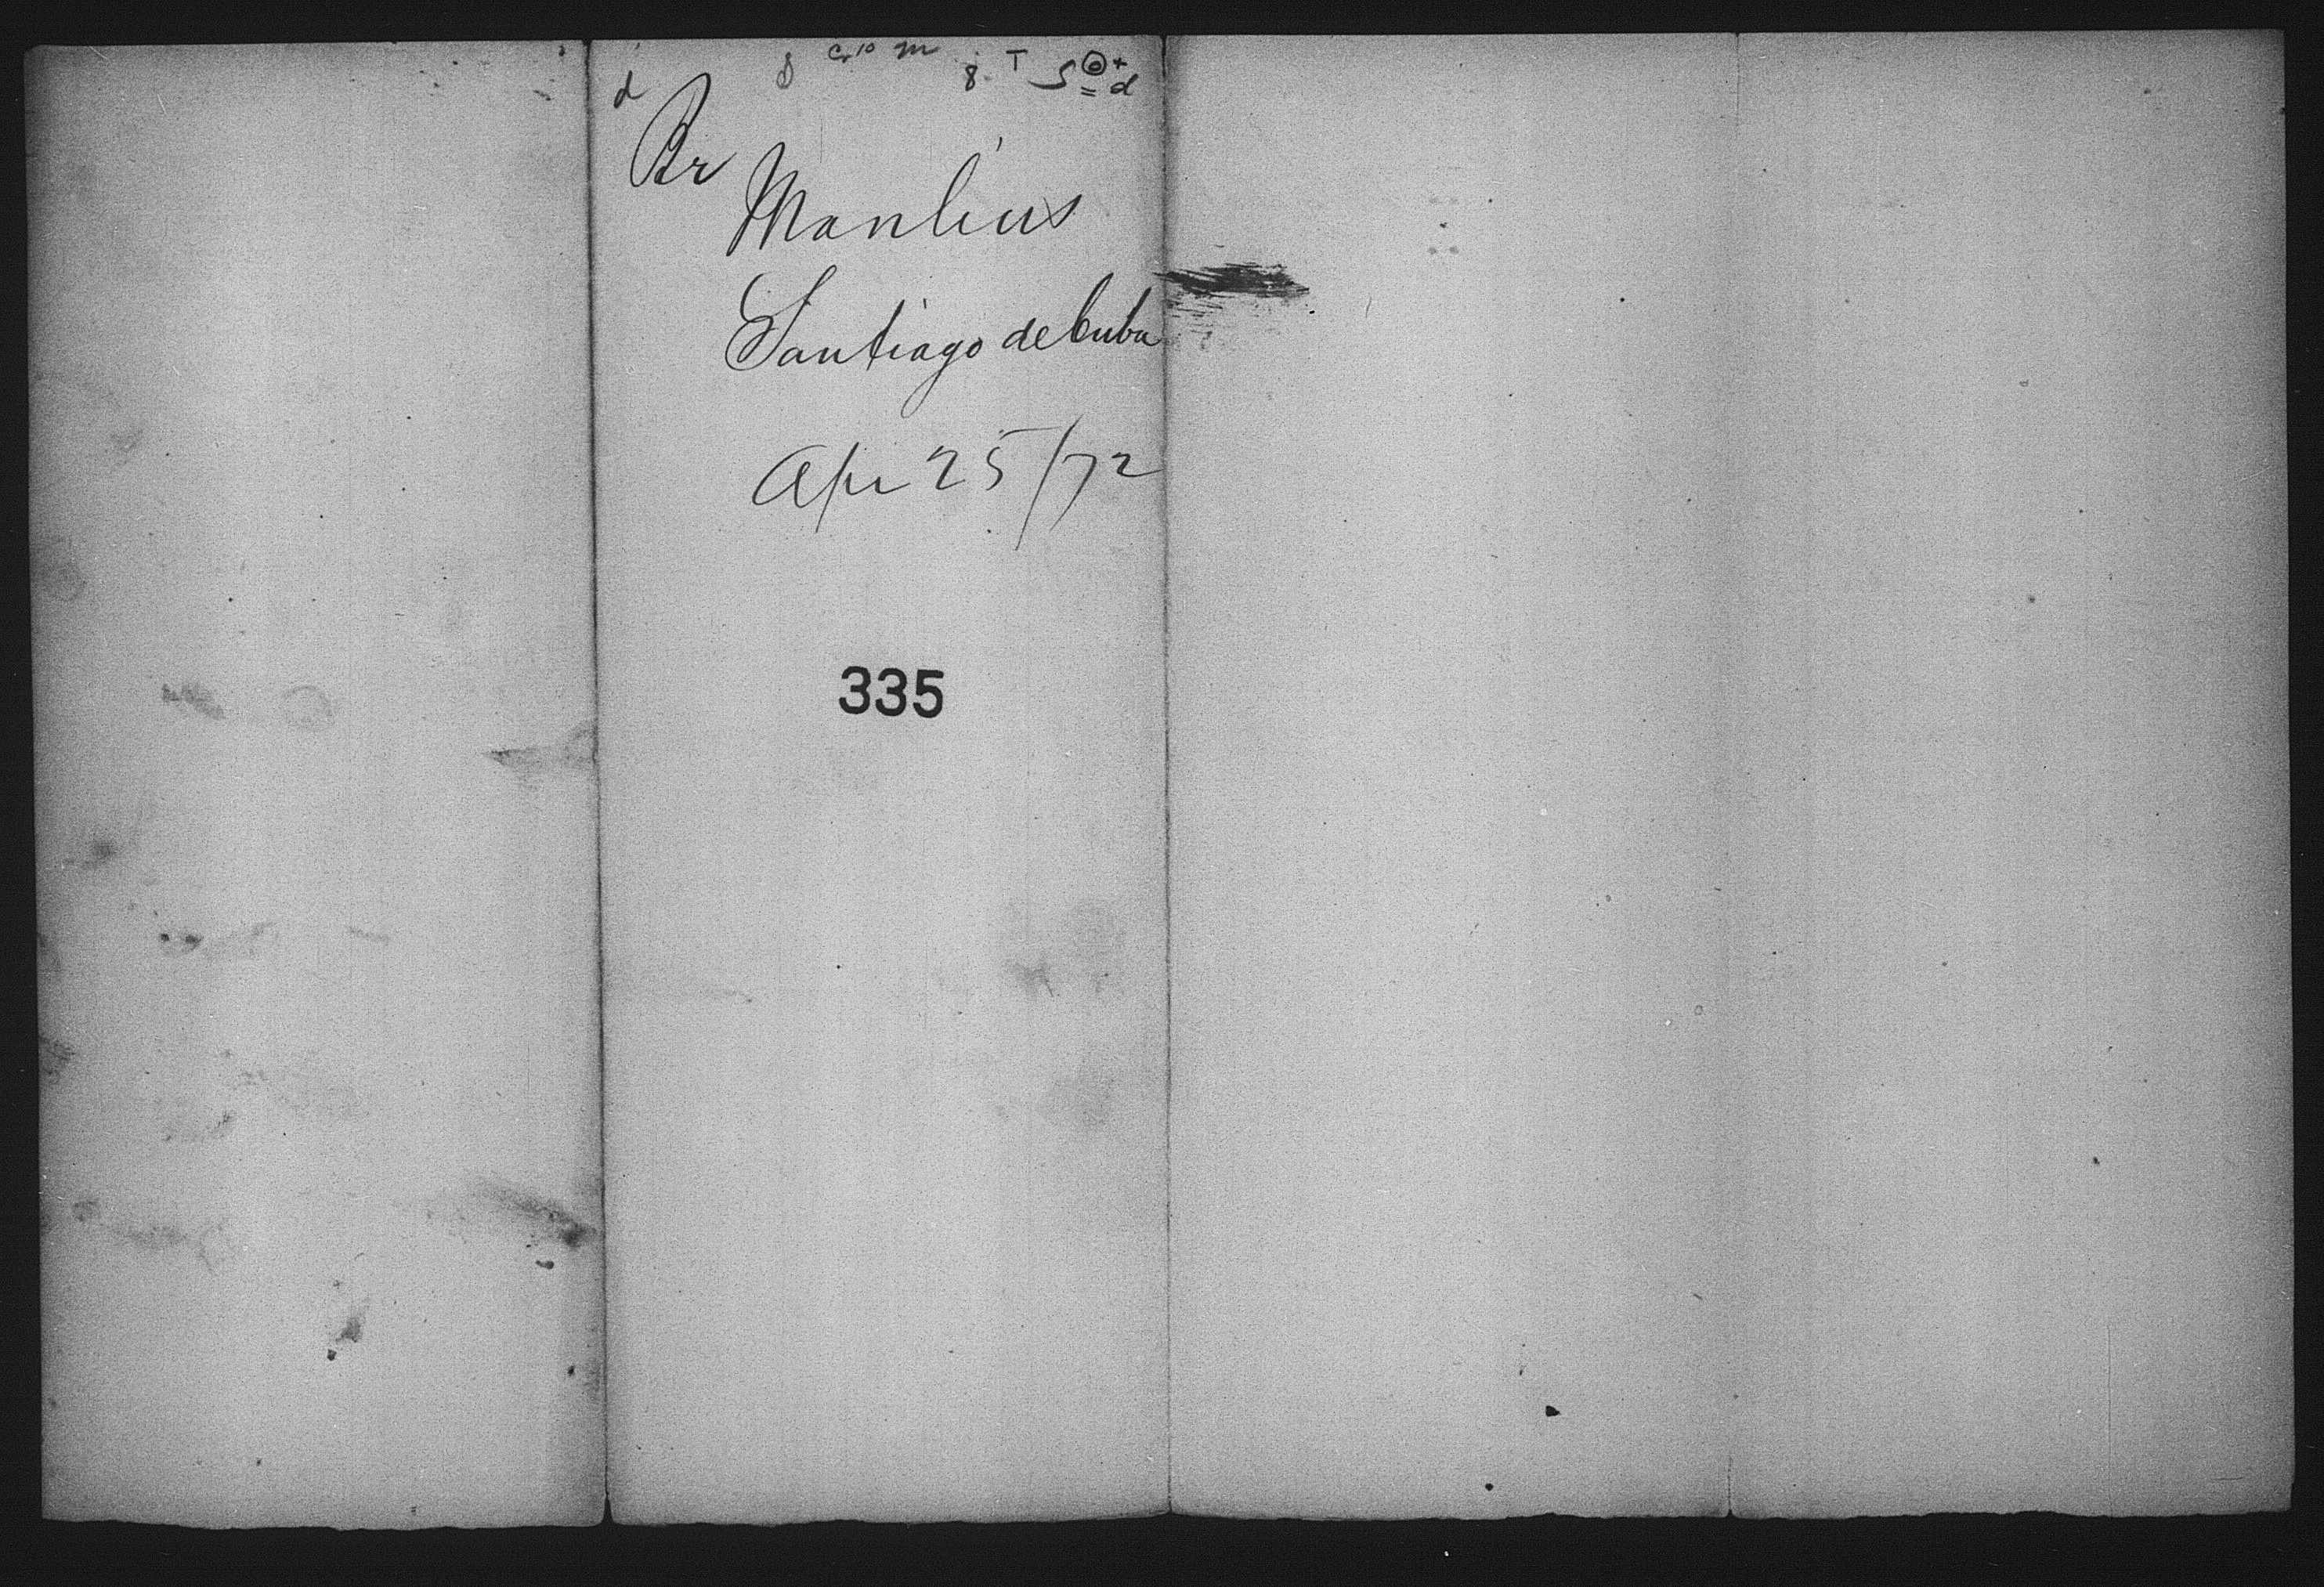 d 8 m 8 T S 6 + d
Br
Manlius
Santiago de Cuba
Apr 25/72
335